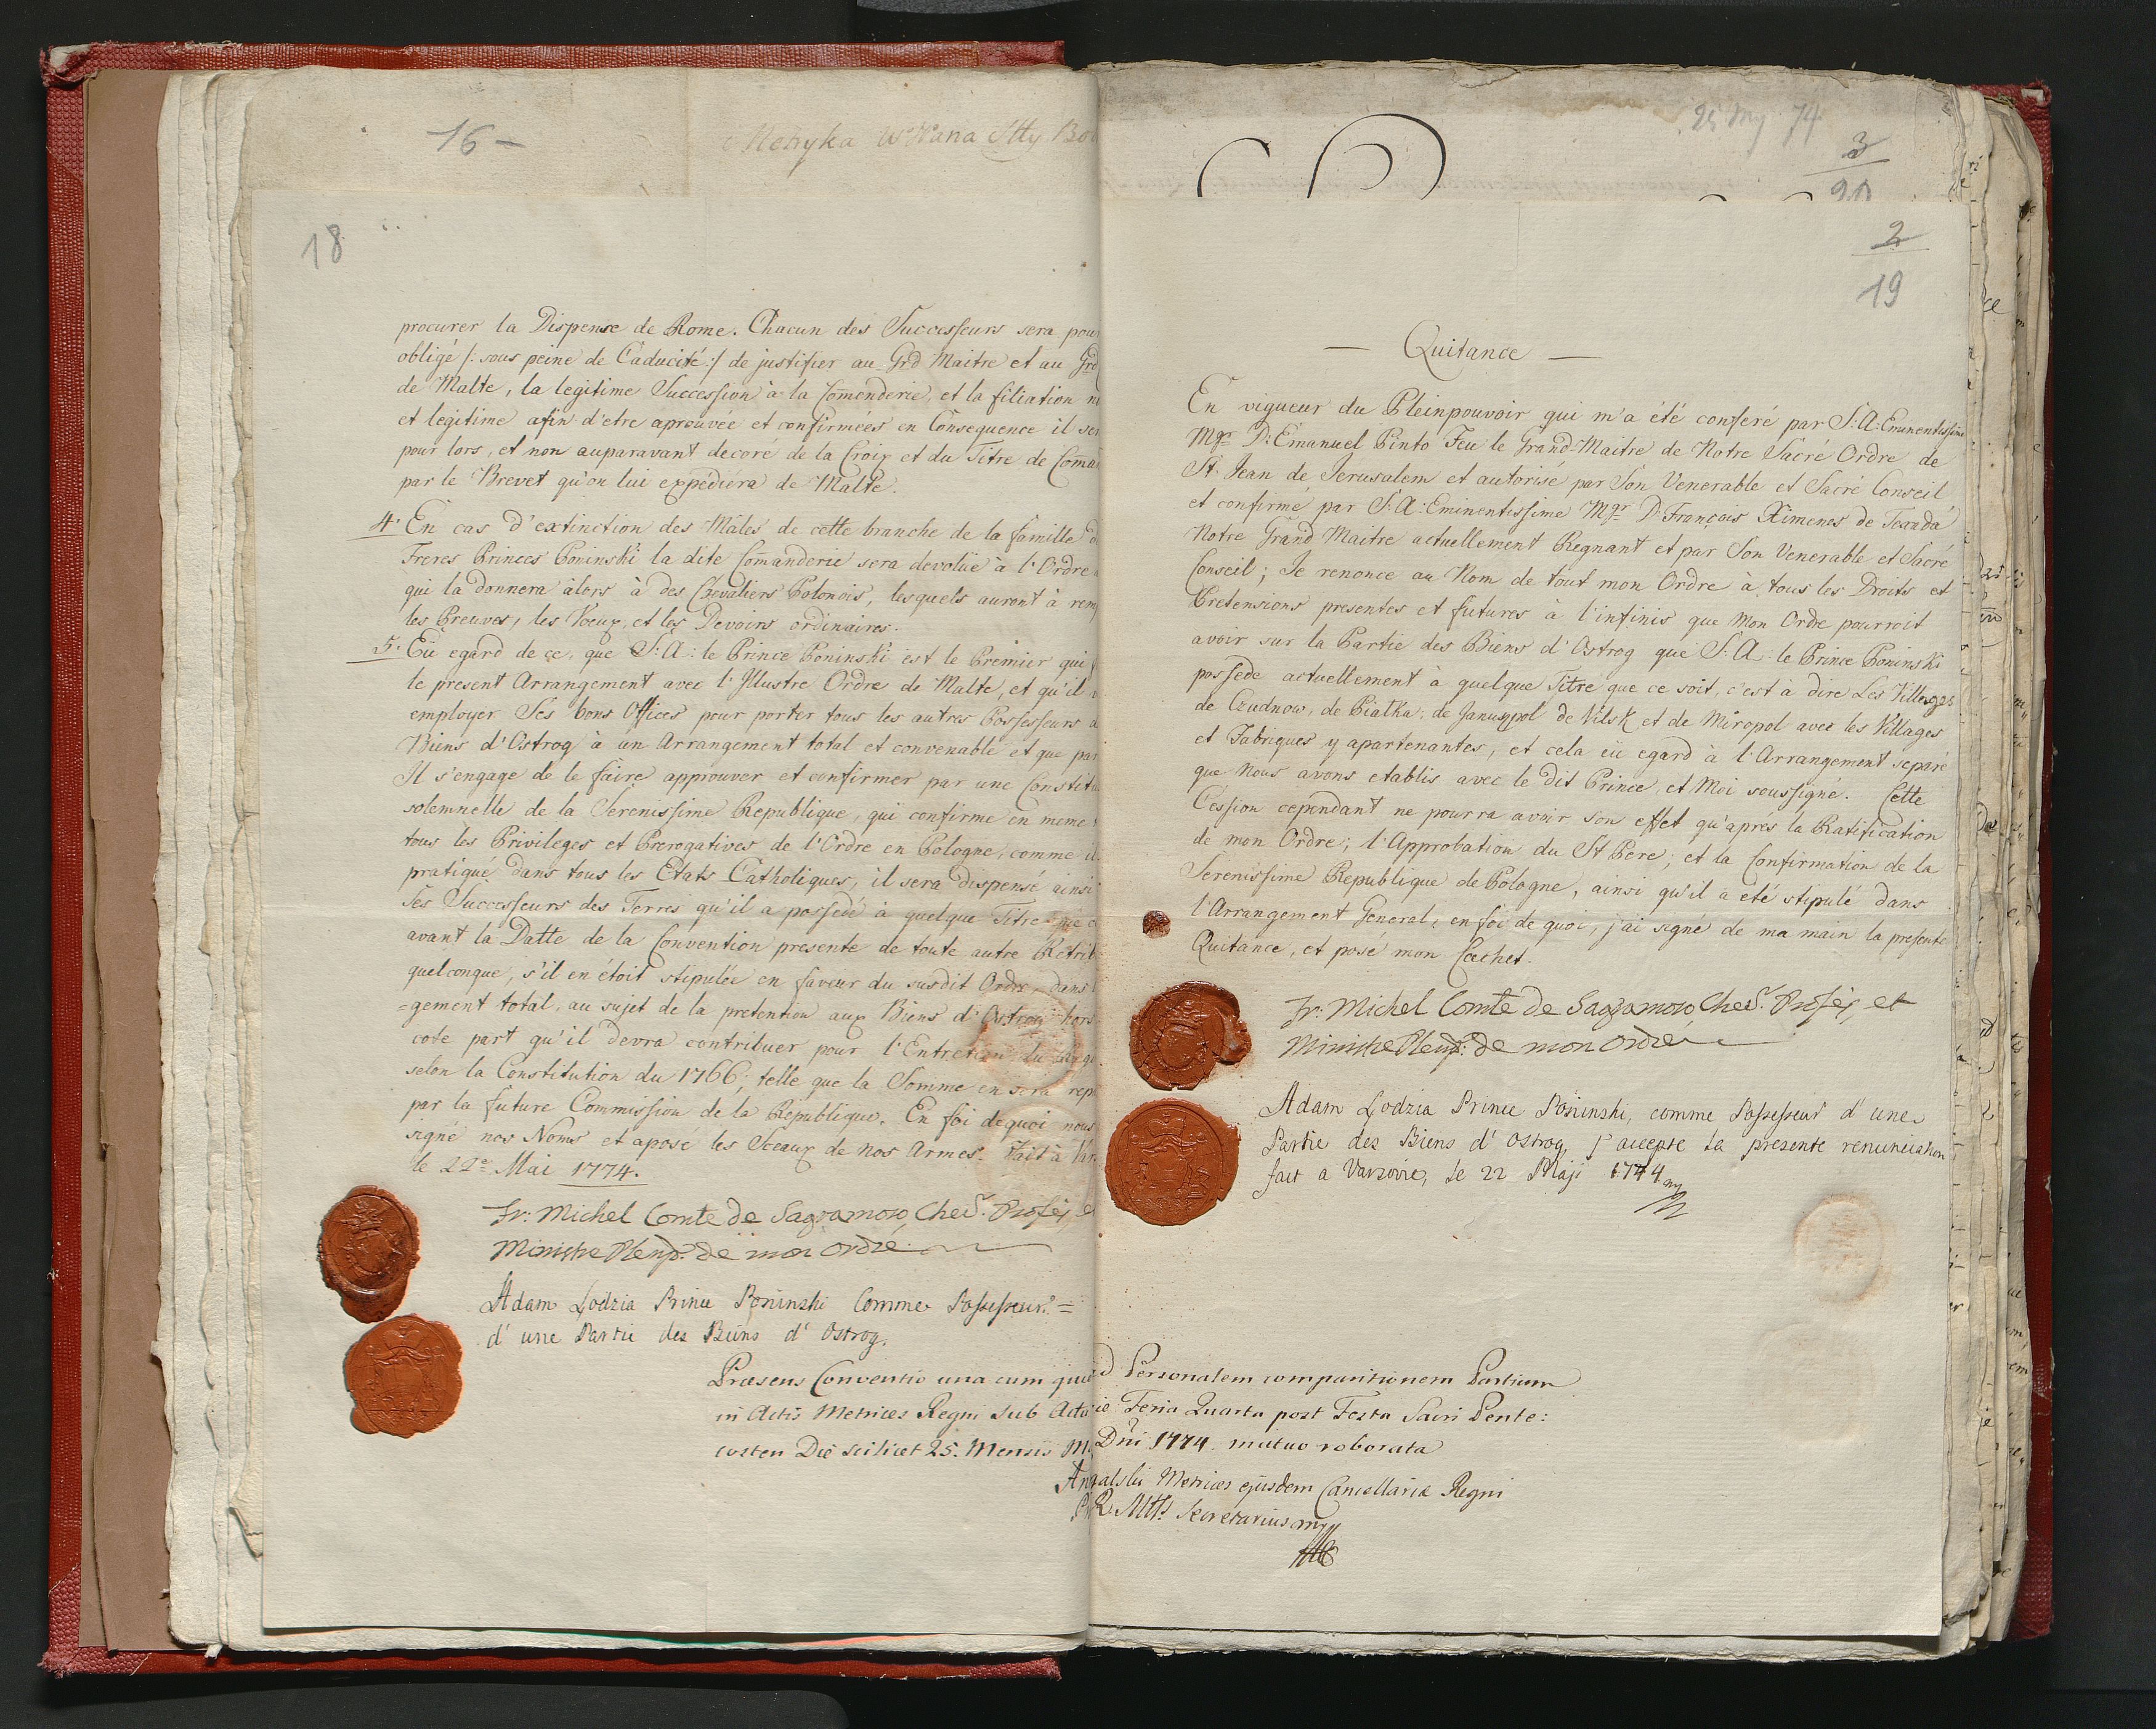 16 -
Metryka
18
procurer la Dispense de Rome. Chacun des Successeurs sera pour
obligé /: sous peine de Caducité :/ de justifier au Grd Maitre et au Grd
de Malte, la legitime Succession à la Comenderie, et la filiation
et legitime afin d'etre aprouvée et confirmées en Consequence il
pour lors, et non auparavant decoré de la Croix et du Titre de
par le Brevet qu'on lui expédiéra de Malte.
4. En cas d'extinction des Mâles de cette branche de la famille
Freres Princes Poninski la dite Comanderie sera devolüe à l'Ordre
qui la donnera àlors à des Chevaliers Polonois, lesquels auront à
les Preuves, les Voeux, et les Devoirs ordinaires.
5. Eü egard de ce, que S: A: le Prince Poninski est le Premier qui
le present Arrangement avec l'Illustre Ordre de Malte, et qu'il
employer Ses bons Offices pour porter tous les autres Possesseurs
Biens d'Ostrog à un Arrangement total et convenable et que par
Il s'engage de le faire approuver et confirmer par une
solemnelle de la Serenissime Republique, qui confirme en meme
tous les Privileges et Prerogatives de l'Ordre en Pologne, comme il
pratiqué dans tous les Etats Catholiques, il sera dispensé ainsi
Ses Successeurs des Terres qu'il a possedé à quelque Titre
avant la Datte de la Convention presente de toute autre
quelconque, s'il en étoit stipulée en faveur du susdit Ordre, dans
=gement total, au sujet de la pretention aux Biens d'Ostrog hors
cote part qu'il devra contribuer pour l'Entretien du
selon la Constitution du 1766; telle que la Somme en sera
par la future Commission de la Republique. En foi dequoi nous
signé nos Noms et aposé les Sceaux de nos Armes. Fait à
le 22e Mai 1774.
Fr: Michel Comte de Sagramoso, Chev.r Profés, et
Ministre Plenp: de mon ordre
Adam Lodzia Prince Poninski Comme Possesseur =
d' une Partie des Biens d' Ostrog.
Praesens Conventio una cum
in Actis Metrices Regni sub
costen Die scilicet 25. Mensis
25 My 74
3
2
19
— Quitance —
En vigueur du Pleinpouvoir qui m'a été conferé par S: A: Eminentissime
Mgr D: Emanuel Pinto Feu le Grand-Maitre de Notre Sacré Ordre de
St. Jean de Jerusalem et autorisé par Son Venerable et Sacré Conseil
et confirmé par S: A: Eminentissime Mgr D: François Ximenes de Texada
Notre Grand Maitre actuellement Regnant et par Son Venerable et Sacré
Conseil; Je renonce au Nom de tout mon Ordre à tous les Droits et
Pretensions presentes et futures à l'infinis que Mon Ordre pourroit
avoir sur la Partie des Biens d'Ostrog que S: A: le Prince Poninski
possede actuellement à quelque Titre que ce soit, c'est à dire Les Villages
de Czudnow, de Piatka, de Januszpol de Vilsk et de Miropol avec les Villages
et Fabriques y apartenantes, et cela eü egard à l'Arrangement séparé
que Nous avons etablis avec le dit Prince, et Moi soussigné. Cette
Cession cependant ne pourra avoir son effet qu'aprés la Ratification
de mon Ordre; l'Approbation du St Pere; et la Confirmation de la
Serenissime Republique de Pologne, ainsi qu'il a eté stipulé dans
l'Arrangement General; en foi de quoi, j'ai signé de ma main la presente
Quitance, et posé mon Cachet.
Fr: Michel Comte de Sagramoso Chev.r Profés, et
Ministre Plenp: de mon ordre
Adam Lodzia Prince Poninski, comme Possesseur d' une
Partie des Biens d' Ostrog, j' accepte la presente renunciation
fait a Varsovie, le 22 Maji 1774 mp
Personalem comparitionem Partium
Feria Quarta post Festa Sacri Pente:
Dni 1774. mutuo roborata
Metrices ejusdem Cancellariæ Regni
Secretarius mp